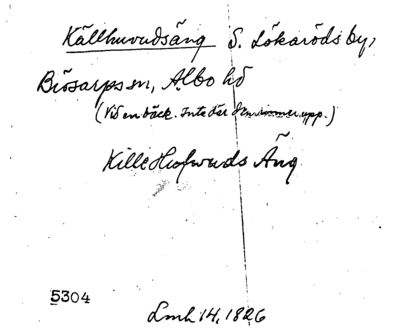 Källhuvudsäng S. Lökaröds by,
Brösarps sn, Albo hd
(Vid en bäck. Inte där den rinner upp.)
Kille Hufwuds Äng
5304
Lmh 14, 1826